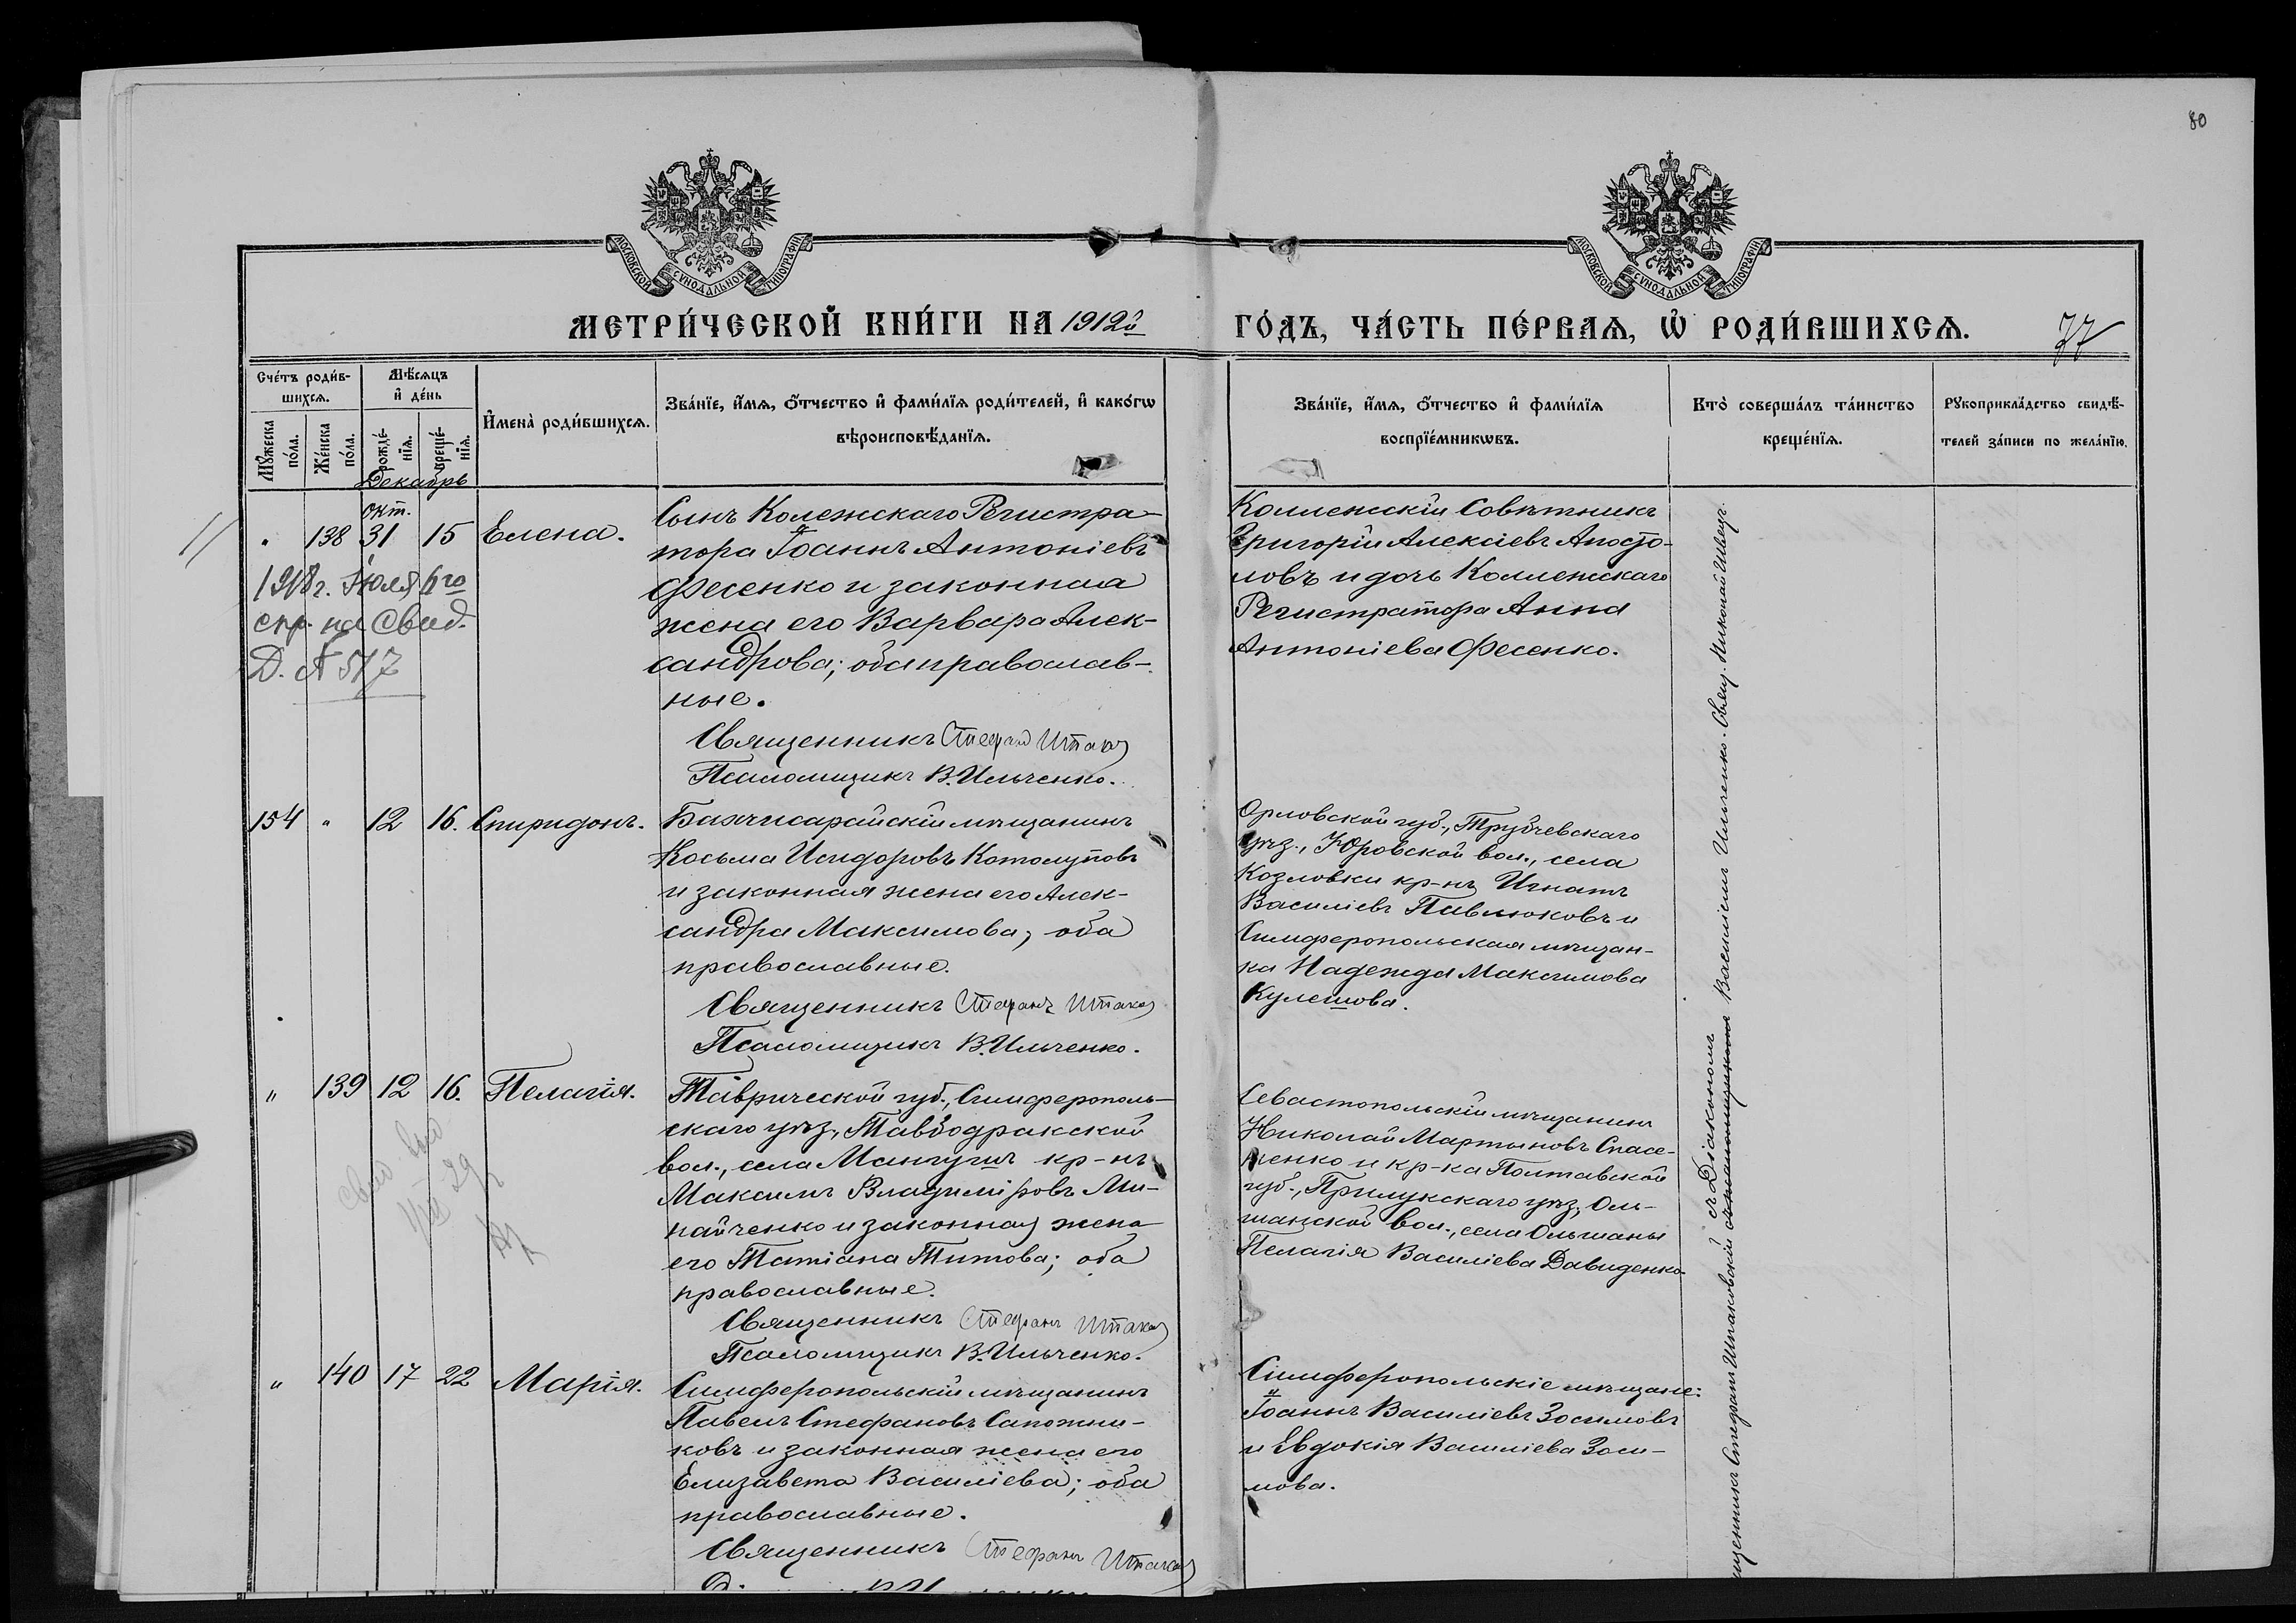 80
МОСКОВСКОЙ СѴНОДАЛЬНОЙ ТИПОГРАФІИ
МОСКОВСКОЙ СѴНОДАЛЬНОЙ ТИПОГРАФІИ
МЕТРИ́ЧЕСКОЙ КНИ́ГИ НА 1912й
ГО́ДЪ, ЧА́СТЬ ПЕ́РВАѦ, Ѡ҆ РОДИ́ВШИХСѦ.
77
Сче́тъ роди́в-
шихсѧ.
Мѣ́сѧцъ
и҆ де́нь
Мꙋ́жеска по́ла.
Же́нска по́ла.
рожде́-нїѧ.
креще́-нїѧ.
И҆мена̀ роди́вшихсѧ.
Зва́нїе, и҆́мѧ, ѻ҆́тчество и҆ фами́лїѧ роди́телей, и҆ како́гѡ
вѣроисповѣ́данїѧ.
Зва́нїе, и҆́мѧ, ѻ҆́тчество и҆ фами́лїѧ
воспрїе́мникѡвъ.
Кто̀ соверша́лъ та́инство
креще́нїѧ.
Рꙋкоприкла́дство свидѣ́-
телей за́писи по жела́нїю.
Декабрь
" 138 окт. 31 15 Елена.
Сынъ Колежскаго Регистра-
тора Іоаннъ Антоніевъ
Фесенко и законная
жена его Варвара Алек-
сандрова; оба православ-
ные.
Священникъ Стефанъ Шпак
Псаломщикъ В. Ильченко.
1918 г. Іюля 6го
спр. на Свид.
Д. № 517
Коллежскій Совѣтникъ
Григорій Алексіевъ Апосто-
ловъ и дочь Коллежскаго
Регистратора Анна
Антоніева Фесенко.
154 " 12 16. Спиридонъ.
Бахчисарайскій мѣщанинъ
Косьма Исидоровъ Котолуповъ
и законная жена его Алек-
сандра Максимова; оба
православные.
Священникъ Стефанъ Шпак
Псаломщикъ В. Ильченко.
Орловской губ., Трубчевскаго
уѣз., Юровской вол., села
Козловки кр-нъ Игнатъ
Василіевъ Павлюковъ и
Симферопольская мѣщан-
ка Надежда Максимова
Кулешова.
" 139 12 16. Пелагія.
Таврической губ., Симферополь-
скаго уѣз., Тавбодракской
вол., села Мангушъ кр-нъ
Максимъ Владиміровъ Ми-
найченко и законная жена
его Татіана Титова; оба
православные.
Священникъ Стефанъ Шпак
Псаломщикъ В. Ильченко.
Севастопольскій мѣщанинъ
Николай Мартыновъ Спасе-
ненко и кр-ка Полтавской
губ., Прилукскаго уѣз., Оль-
шанской вол., села Ольшаны
Пелагія Василіева Давиденко
" 140 17 22 Марія.
Симферопольскій мѣщанинъ
Павелъ Стефановъ Сапожни-
ковъ и законная жена его
Елизавета Василіева; оба
православные.
Священникъ Стефанъ Шпак
Симферопольскіе мѣщане:
Іоаннъ Василіевъ Зосимовъ
и Евдокія Василіева Зоси-
мова.
щенникъ Стефанъ Шпаковскій съ Діакономъ Василіемъ Ильченко. Свящ. Николай Швецъ.